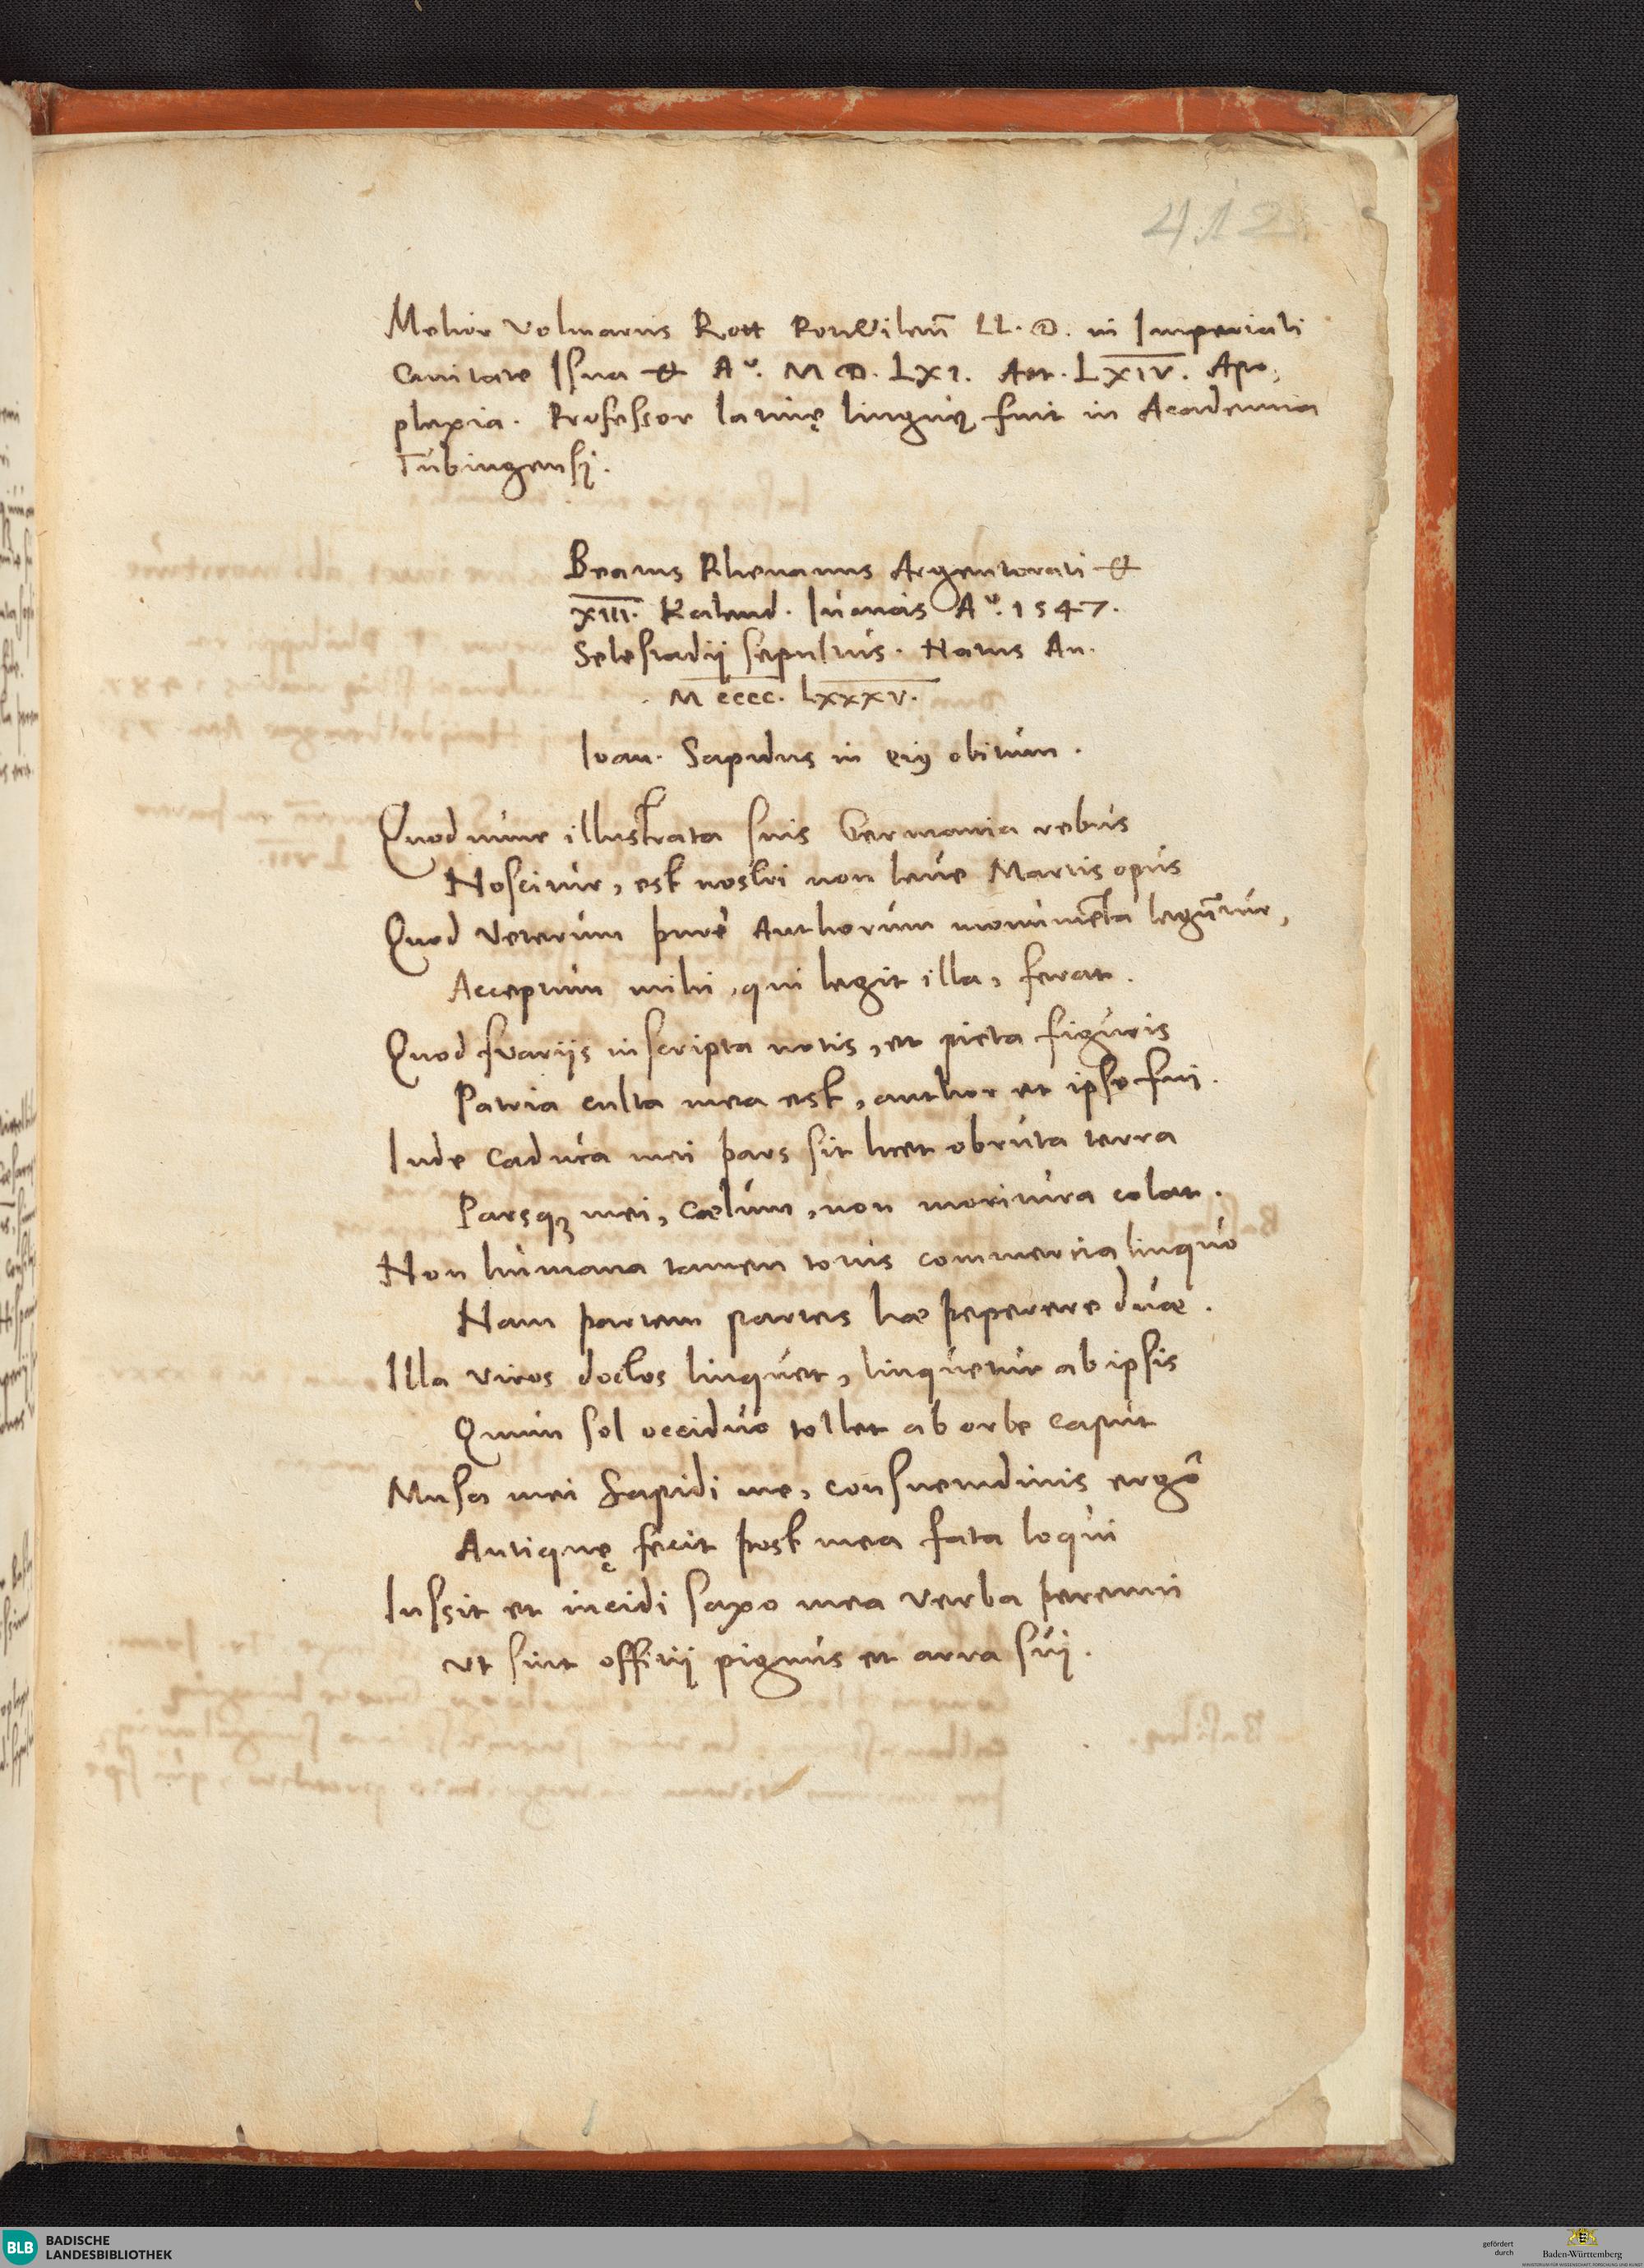 412.
Melior Volmarius Rott Rotwilensis LL. D. in Imperiali
Civitate Isna ☩ Aº. M D. LXI. Aet. LXIV. Apo,
plexia. Professor latinę linguę fuit in Academia
Tubingensi.
Beatus Rhenanus Argentorati ☩
XIII. Kalend. Iunias Aº. 1547.
Selestadij sepultus. Natus An.
M CCCC. LXXXV.
Ioan. Sapidus in eiꝰ obitum.
Quod nunc illustrata suis Germania rebus
Noscitur, est nostri non leve Martis opus
Quod Veterum purè Authorum monumēta legūtur,
Acceptum mihi, qui legit illa, ferat.
Quod variis inscripta notis, et picta figuris
Patria culta mea est, author et ipse fui.
Inde caduca mei pars sit licet obruta terra
Parsqꝫ mei, cælum, non moritura colat.
Non humana tamen totus commercia linquo
Nam partem partes hæ peperere duæ.
Illa viros doctos linquet, linquetur ab ipsis
Quum sol occiduo tollet ab orbe caput
Musa mei Sapidi me, consuetudinis ergô
Antiquę fecit post mea fata loqui
Iussit et incidi saxo mea verba perenni
Vt sint officij pignus et arra sui.
BLB BADISCHE
LANDESBIBLIOTHEK
gefördert
durch
Baden-Württemberg